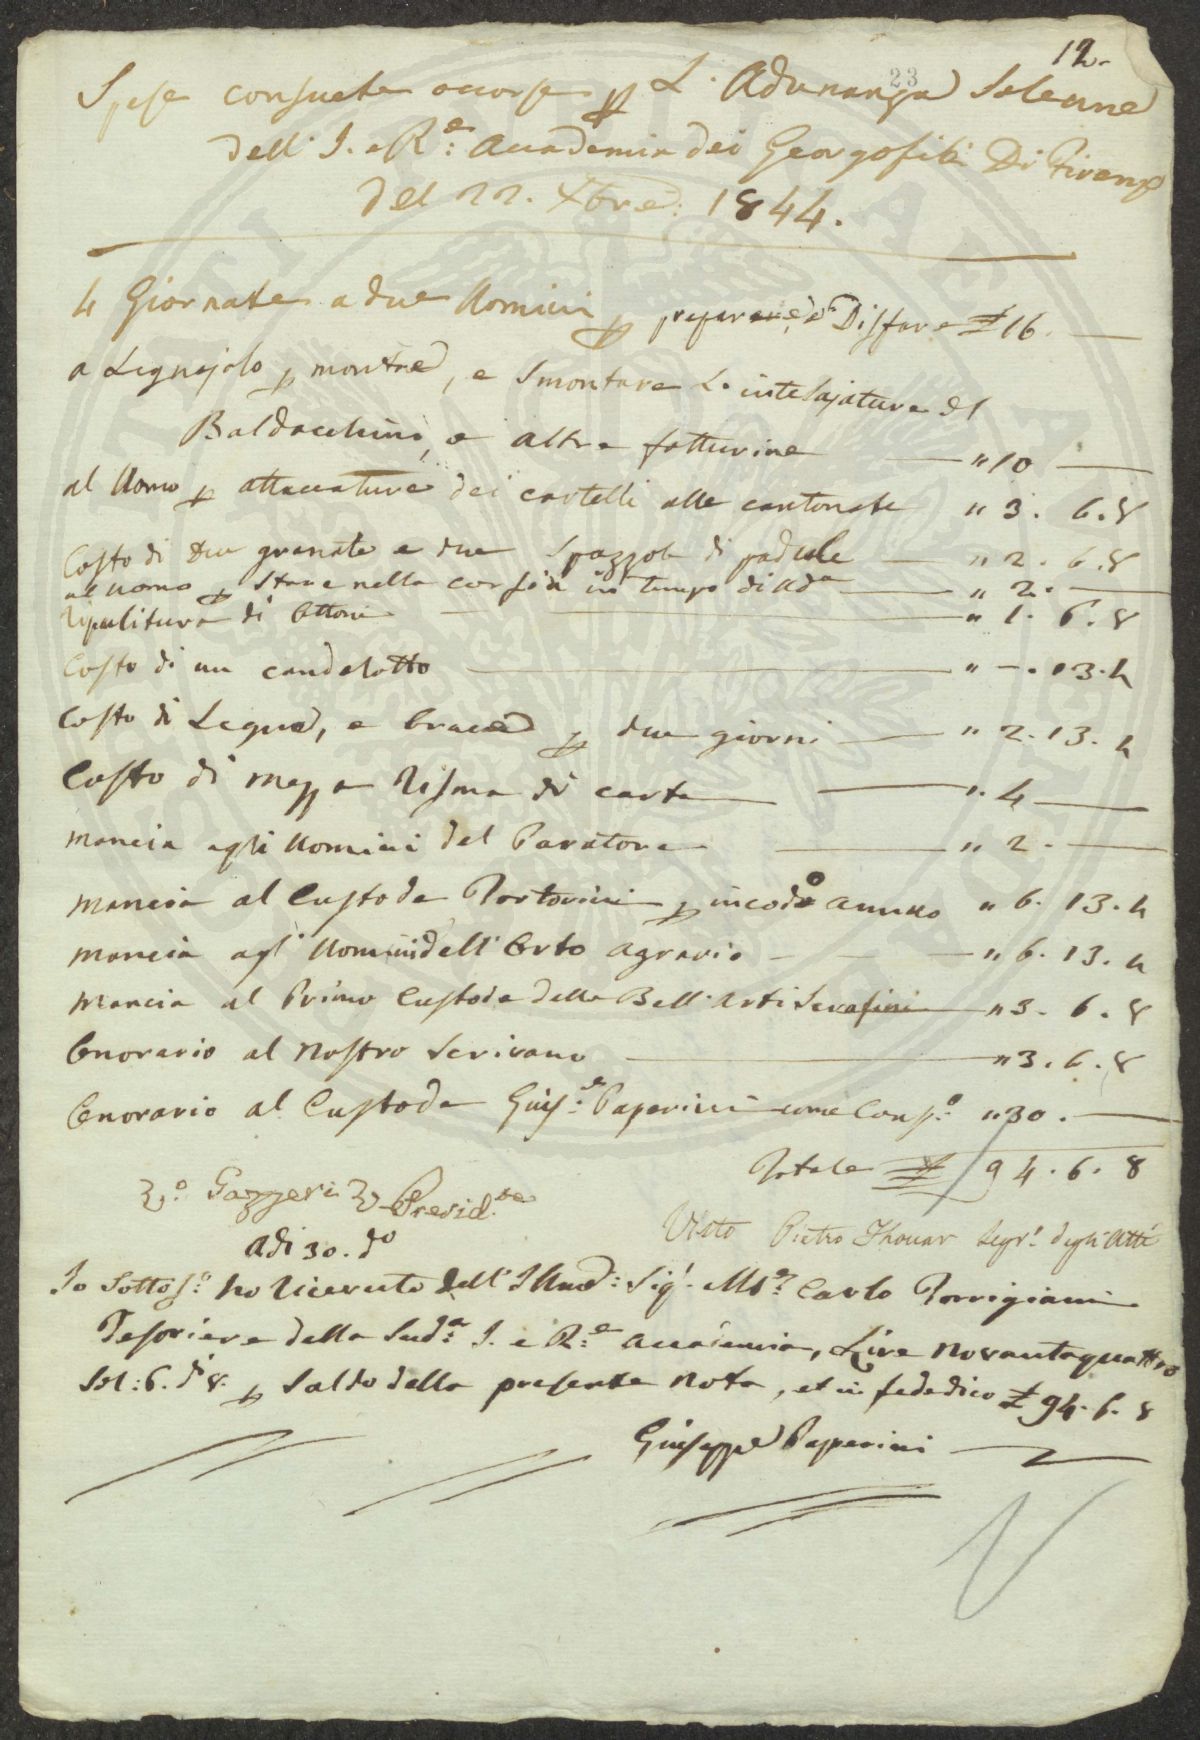 12.
23
Spese consuete occorse p L'Adunanza Solenne
dell' I. e R.e Accademia dei Georgofili Di Firenze
del 22. Xbre: 1844.
4 Giornate a due Uomini p preparare, e Disfare £ 16. —
a Legnajolo p montare, e Smontare L'intelajature dl
Baldacchini, e altre fatturine — " 10 —
al Uomo p attaccature dei cartelli alle cantonate " 3. 6. 8
Costo di due granate e due Spazzole di padule — " 2. 6. 8
al uomo p Stare nella corsia in tempo di Ada — " 2. —
Ripulitura di Ottoni — " 1. 6. 8
Costo di un candelotto — " —. 13. 4
Costo di Legne, e brace p due giorni — " 2. 13. 4
Costo di mezza Risma di carta — " 4 —
Mancia agli Uomini del Paratore — " 2. —
Mancia al Custode Tortorini p incodo annuo " 6. 13. 4
Mancia agl' Uomini dell' Orto Agrario - - — " 6. 13. 4
Mancia al Primo Custode delle Bell' Arti Serafini — " 3. 6. 8
Onorario al Nostro Scrivano — " 3. 6. 8
Onorario al Custode Giuse Paperini come Conso: " 30. —
Totale £ 94. 6. 8
Vo. Gazzeri V. Presidte
Visto Pietro Thouar Segr. degli Atti
Adi 30. do
Io Sottoso: ho ricevuto dall' Illmo: Sigr. Mse Carlo Torrigiani
Tesoriere della Suda: I. e R.e Accademia, Lire Novantaquattro
Sol: 6. di 8. p Saldo della presente Nota, et in fede dico £ 94. 6. 8
Giuseppe Paperini